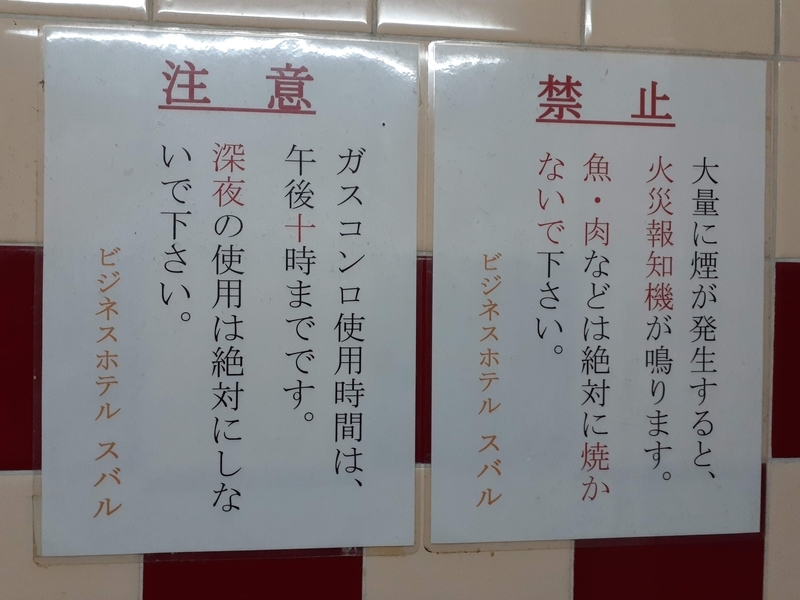 禁止
大量に煙が発生すると、
火災報知機が鳴ります。
魚・肉などは絶対に焼か
ないで下さい。
ビジネスホテル スバル
注意
ガスコンロ使用時間は、
午後十時までです。
深夜の使用は絶対にしな
いで下さい。
ビジネスホテル スバル